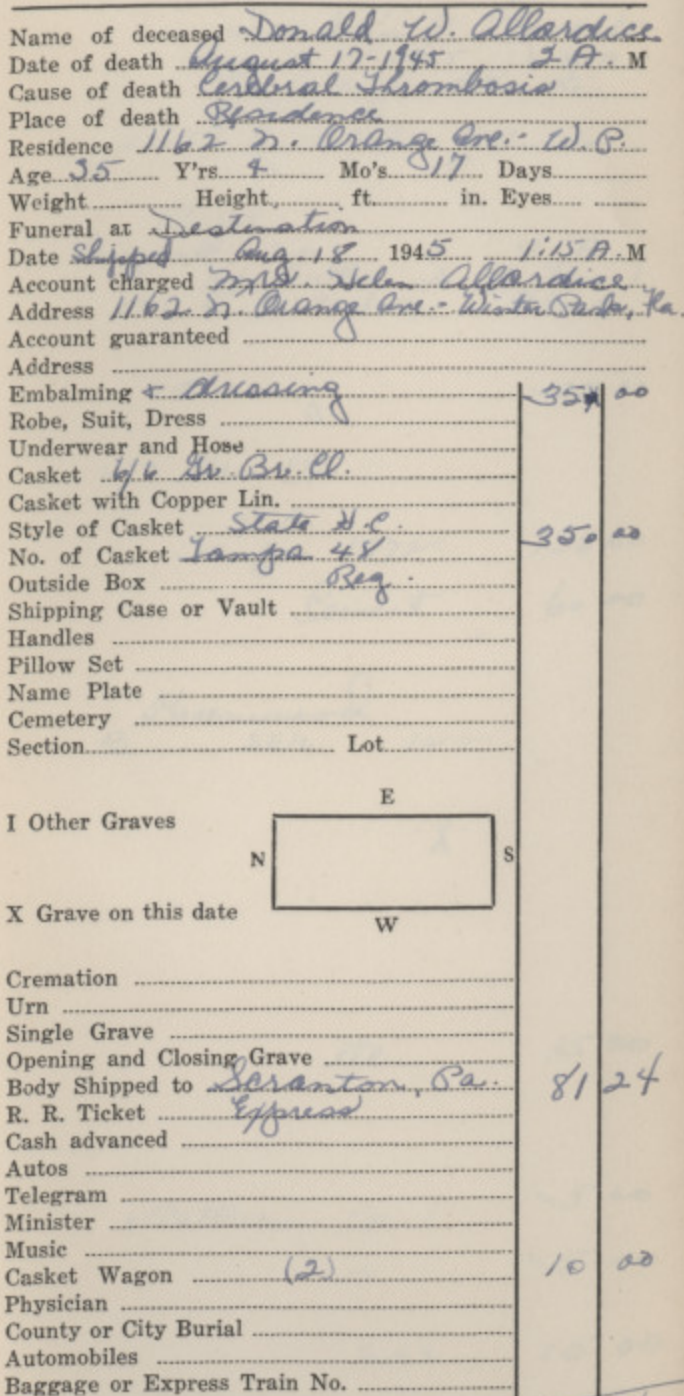 Name of deceased Donald W. Allardice
Date of death August 17-1945 2 A. M
Cause of death Cerebral Thrombosis
Place of death Residence
Residence 1162 N. Orange Ave. - W. P.
Age 35 Y'rs. 4 Mo's. 17 Days
Weight Height ft. in. Eyes
Funeral at Destination
Date Shipped Aug. 18 1945 1:15 A. M
Account charged Mrs. Helen Allardice
Address 1162 N. Orange Ave. - Winter Park, Fla.
Account guaranteed
Address
Embalming & dressing 35 00
Robe, Suit, Dress
Underwear and Hose
Casket 6/6 Gr. Br. Cl.
Casket with Copper Lin.
Style of Casket State H.C. 350 00
No. of Casket Tampa 48
Outside Box Reg.
Shipping Case or Vault
Handles
Pillow Set
Name Plate
Cemetery
Section Lot
E
I Other Graves
N S
X Grave on this date
W
Cremation
Urn
Single Grave
Opening and Closing Grave
Body Shipped to Scranton, Pa. 81 24
R. R. Ticket Express
Cash advanced
Autos
Telegram
Minister
Music
Casket Wagon (2) 10 00
Physician
County or City Burial
Automobiles
Baggage or Express Train No.